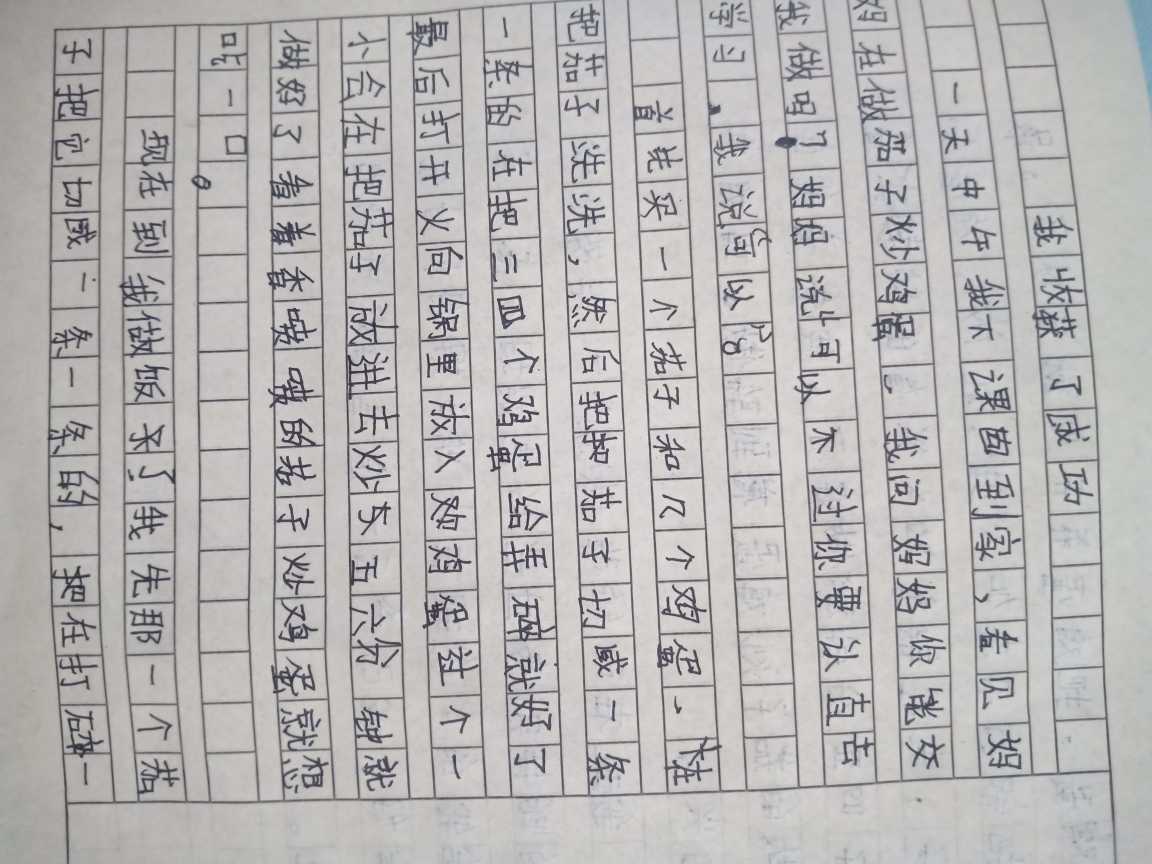 我收获了成功
一天中午我下课回到家，看见妈
妈在做茄子炒鸡蛋。我问妈妈你能交
我做吗？妈妈说可以不过你要认真苦
学习，我说可以。
首先买一个茄子和几个鸡蛋、在
把茄子洗洗，然后把把茄子切成一条
一条的在把三四个鸡蛋给弄碎就好了
最后打开火向锅里放入鸡蛋过个一
小会在把茄子放进去炒大五六份钟就
做好了看着香喷喷的茄子炒鸡蛋就想
吃一口。
现在到我做饭不了我先那一个茄
子把它切成一条一条的，把在打碎一